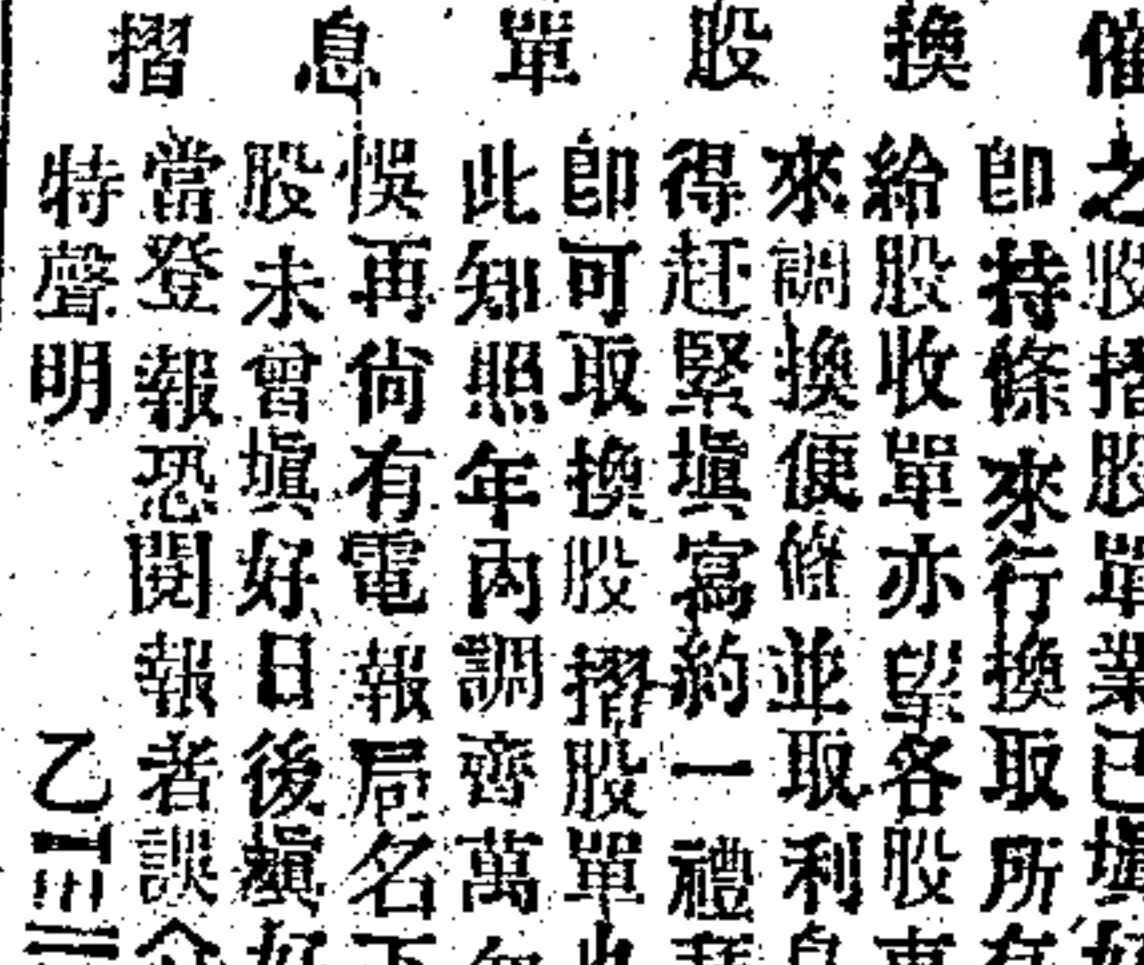 催換股單息摺
之收摺股單業已填好
卽持條來行換取所存
給股收單亦望各股東
來調換便條並取利息
得赶緊填寫約一禮拜
卽可取換股摺股單收
此知照年內調齊萬勿
悞再尙有電報局名下
股未曾填好日後填好
當登報恐閱報者誤會
特聲明 乙